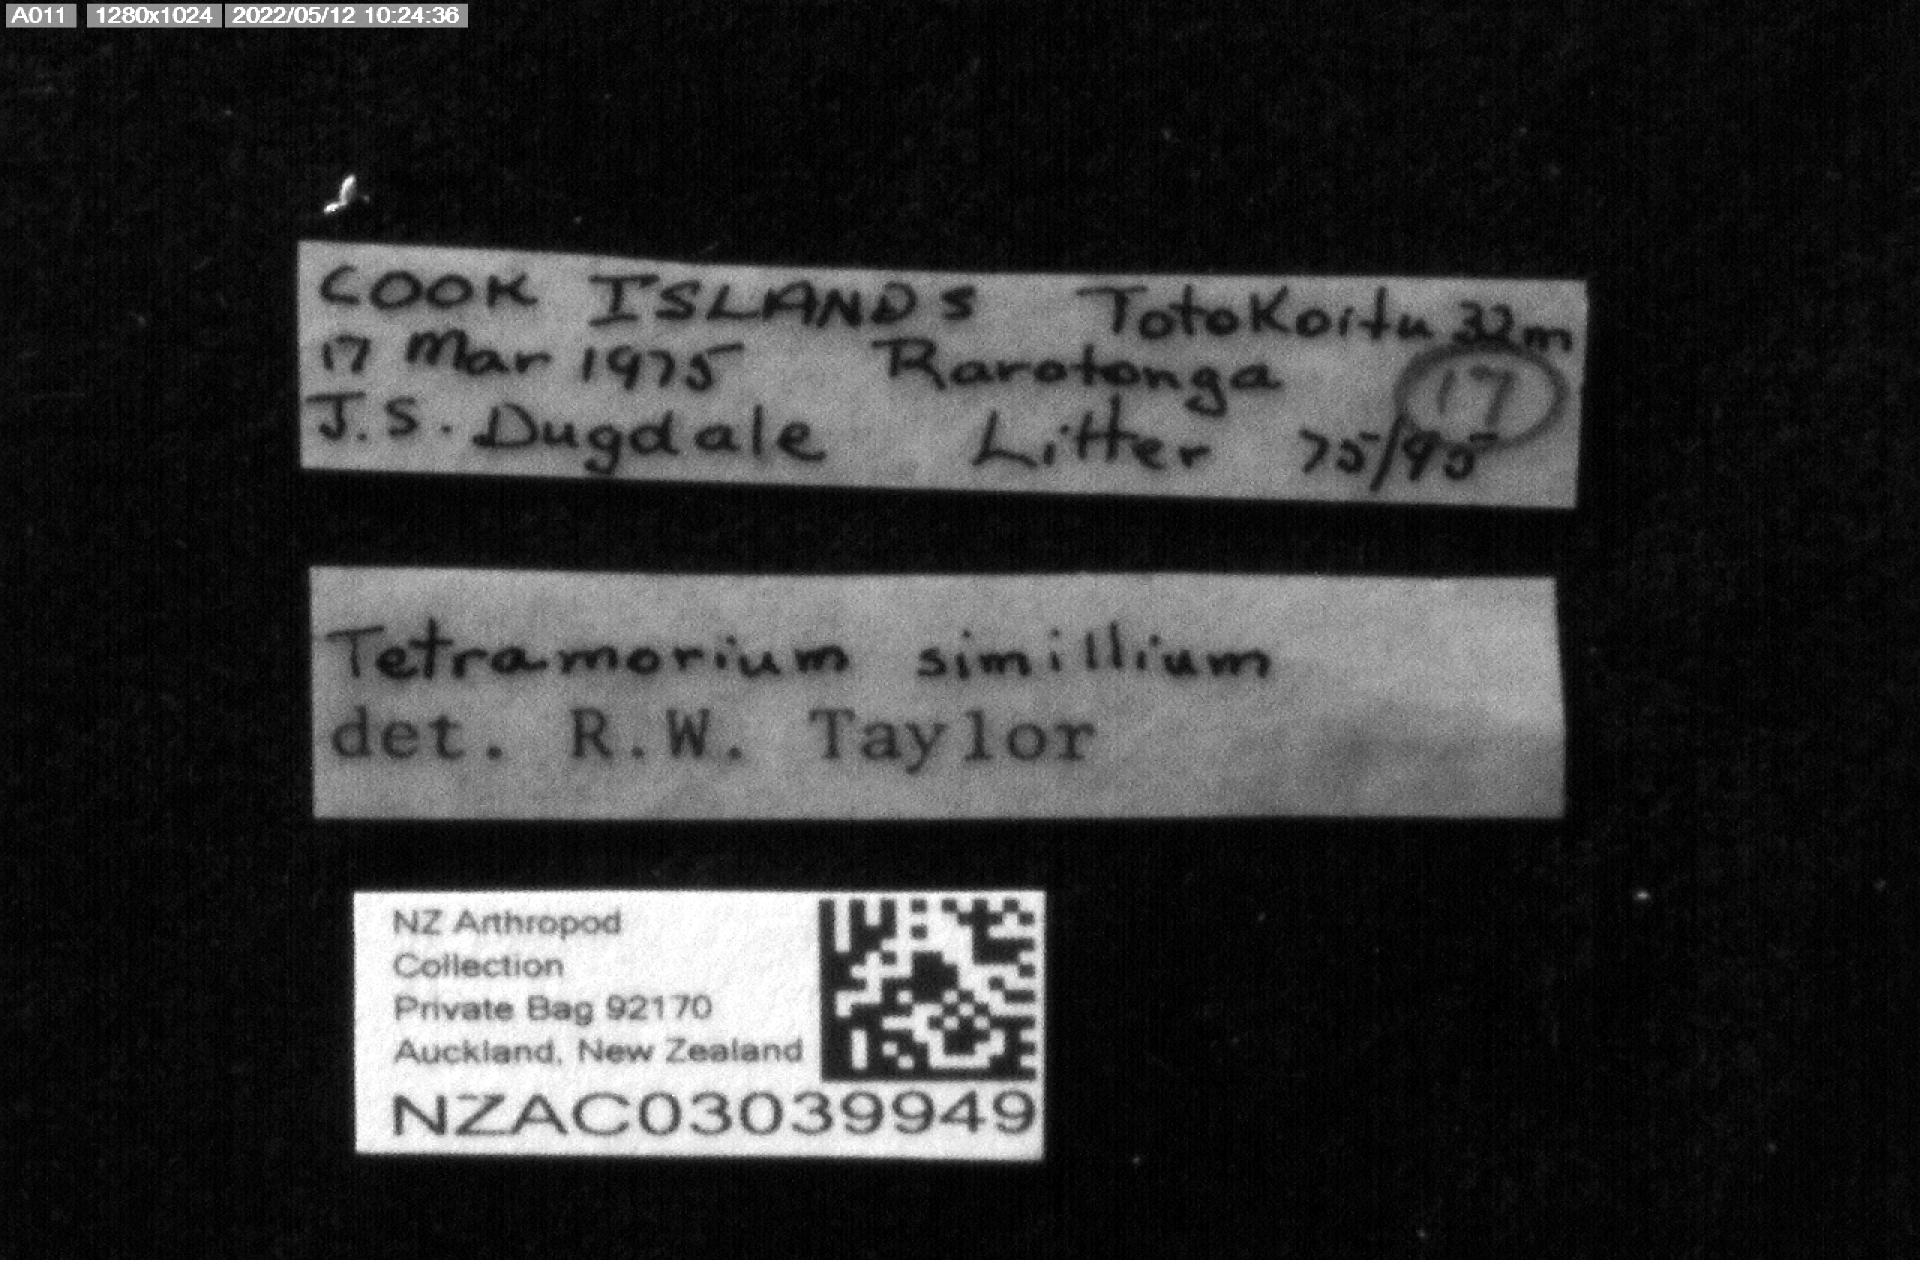 A011 1280x1024 2022/05/12 10:24:36
COOK ISLANDS Totokoitu 32m
17 Mar 1975 Rarotonga 17
J.S. Dugdale Litter 75/95
Tetramorium simillium
det. R.W. Taylor
NZ Arthropod
Collection
Private Bag 92170
Auckland, New Zealand
NZAC03039949